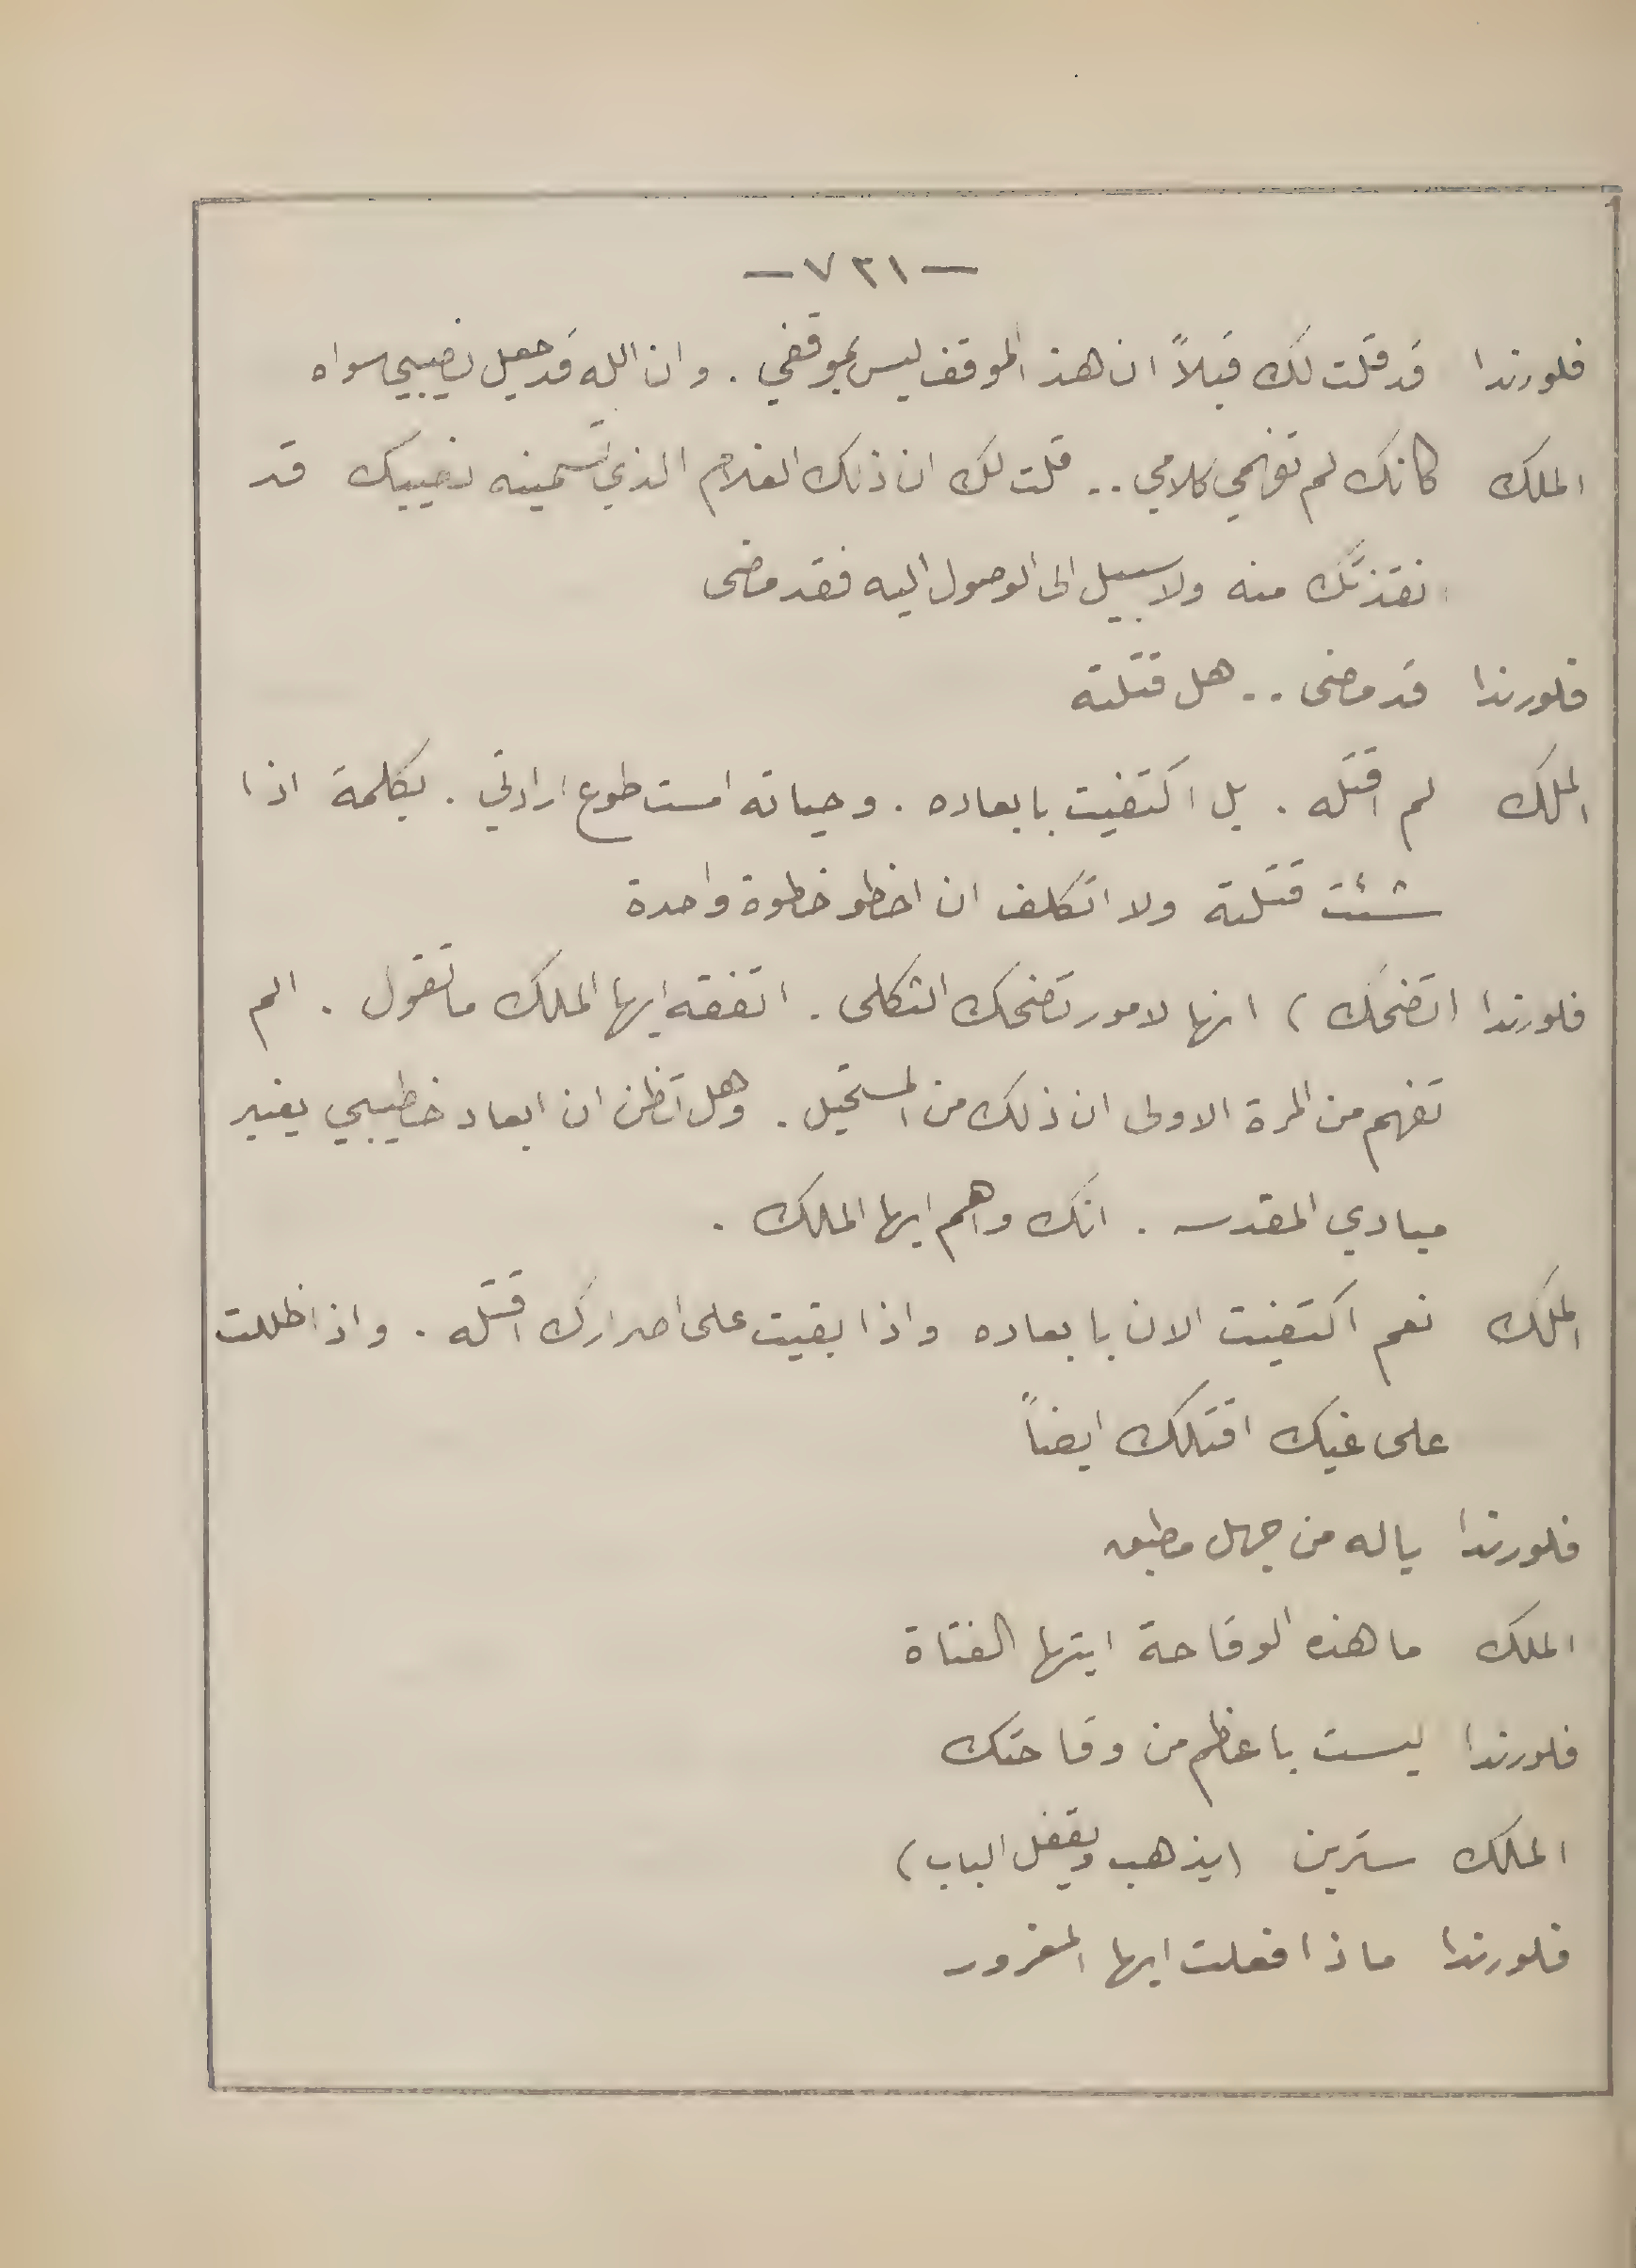 — ٧٣١ —
فلورندا قد قلت لك قبلاً ان هذا الموقف ليس بموقفي . وان الله قد جعل نصيبي سواه
الملك كانك لم تفهمي كلامي .. قلت لك ان ذلك الغلام الذي تسمينه نصيبك قد
انقذتك منه ولا سبيل الى الوصول اليه فقد مضى
فلورندا قد مضى .. هل قتلته
الملك لم اقتله . بل اكتفيت بابعاده . وحياته امست طوع ارادتي . بكلمة اذا
شئت قتلته ولا اتكلف ان اخطو خطوة واحدة
فلورندا (تضحك) انها لامور تضحك الثكلى . اتفقه ايها الملك ما تقول . الم
تفهم من المرة الاولى ان ذلك من المستحيل . وهل تظن ان ابعاد خطيبي يغير
مبادي المقدسه . انك واهم ايها الملك .
الملك نعم اكتفيت الان بابعاده واذا بقيت على اصرارك اقتله . واذا ظللت
على غيك اقتلك ايضاً
فلورندا ياله من جهل مطبق
الملك ما هذه الوقاحة ايتها الفتاة
فلورندا ليست باعظم من وقاحتك
الملك سترين (يذهب ويقفل الباب)
فلورندا ماذا فعلت ايها المغرور